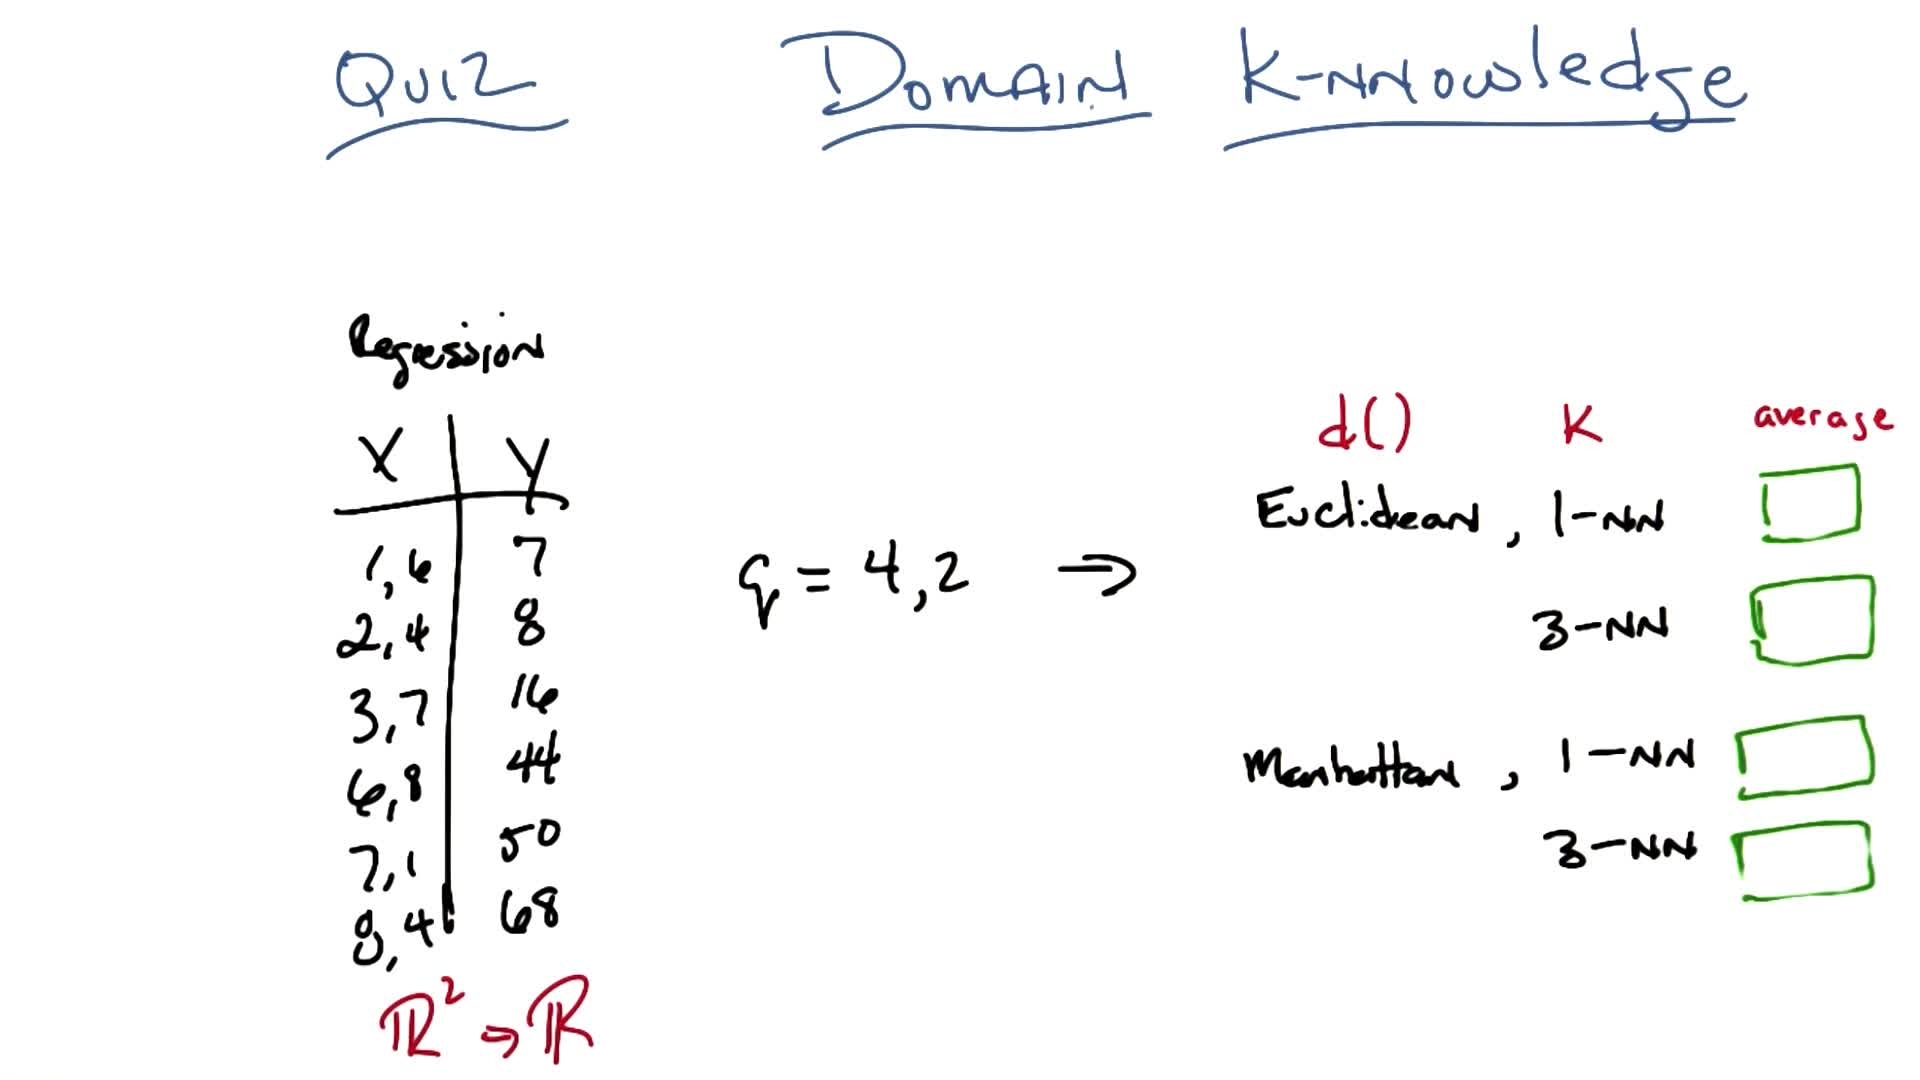 QUIZ
DOMAIN K-NNOWledge
Regression
X Y
1,6 7
2,4 8
3,7 16
6,8 44
7,1 50
8,4 68
ℝ² → ℝ
q = 4,2 ⇒
d() K average
Euclidean, 1-NN
3-NN
Manhattan, 1-NN
3-NN